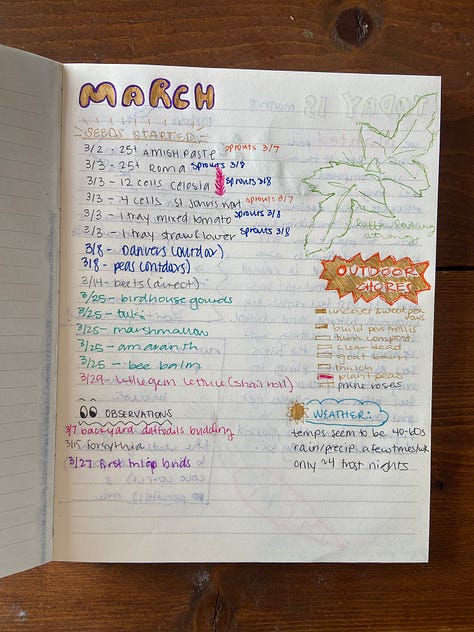 MARCH
SEEDS STARTED:
3/2 - 25+ AMISH PASTE sprouts 3/7
3/3 - 25+ Roma sprouts 3/8
3/3 - 12 cells celosia sprouts 3/8
3/3 - 4 cells st john's wort sprouts 3/7
3/3 - 1 tray mixed tomato sprouts 3/8
3/3 - 1 tray strawflower sprouts 3/8
3/8 - Danvers (outdoor)
3/8 - peas (outdoors)
3/14 - beets (direct)
3/25 - birdhouse gourds
3/25 - tulsi
3/25 - marshmallow
3/25 - amaranth
3/25 - bee balm
3/29 - little gem lettuce (snail roll)
OUTDOOR CHORES
uncover sweet pea
build pea trellis
turn compost
clear dead
goat barn
mulch
plant peas
prune roses
OBSERVATIONS
3/7 backyard daffodils budding
3/15 forsythia
3/27 first tulip buds
WEATHER:
temps seem to be 40-60s
rain/precip a few times/wk
only frost nights